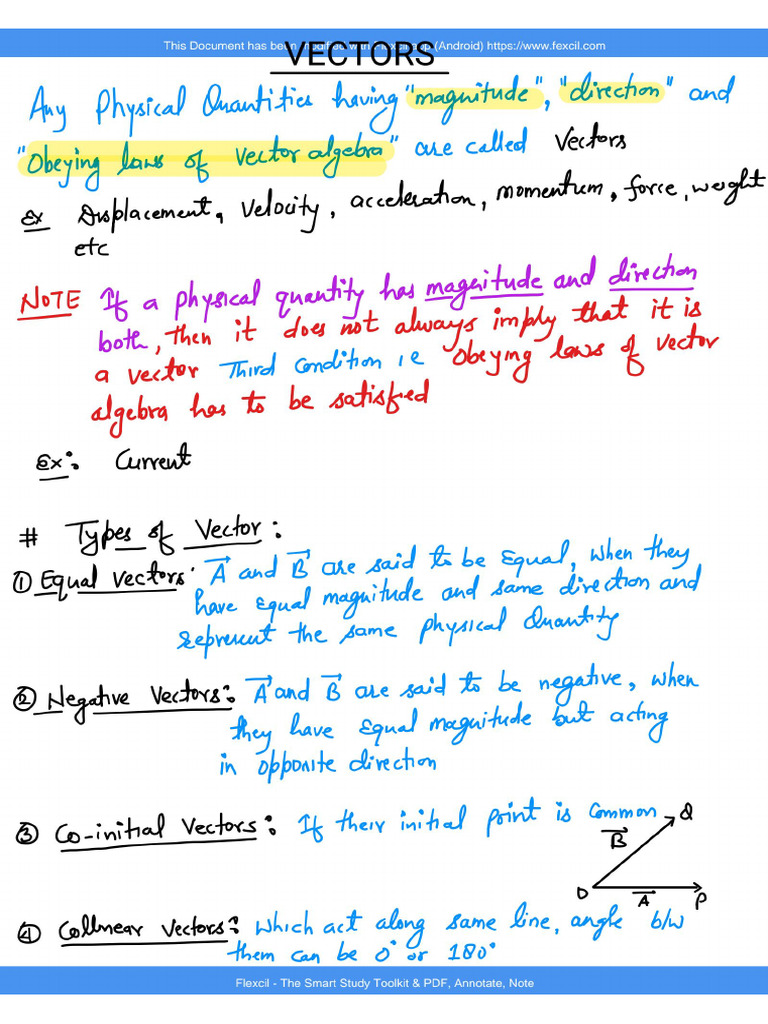 This Document has been modified with Flexcil app (Android) https://www.fexcil.com
VECTORS
Any Physical Quantities having "magnitude", "direction" and
"Obeying laws of vector algebra" are called Vectors
Ex Displacement, Velocity, acceleration, momentum, force, weight
etc
NOTE If a physical quantity has magnitude and direction
both, then it does not always imply that it is
a vector Third Condition i.e Obeying laws of vector
algebra has to be satisfied
Ex: Current
# Types of Vector:
① Equal Vectors: A and B are said to be Equal, when they
have equal magnitude and same direction and
represent the same physical Quantity
② Negative Vectors: A and B are said to be negative, when
they have Equal magnitude but acting
in opposite direction
③ Co-initial Vectors: If their initial point is Common
Q
B
O
A
P
④ Collinear Vectors: Which act along same line, angle b/w
them can be 0° or 180°
Flexcil - The Smart Study Toolkit & PDF, Annotate, Note